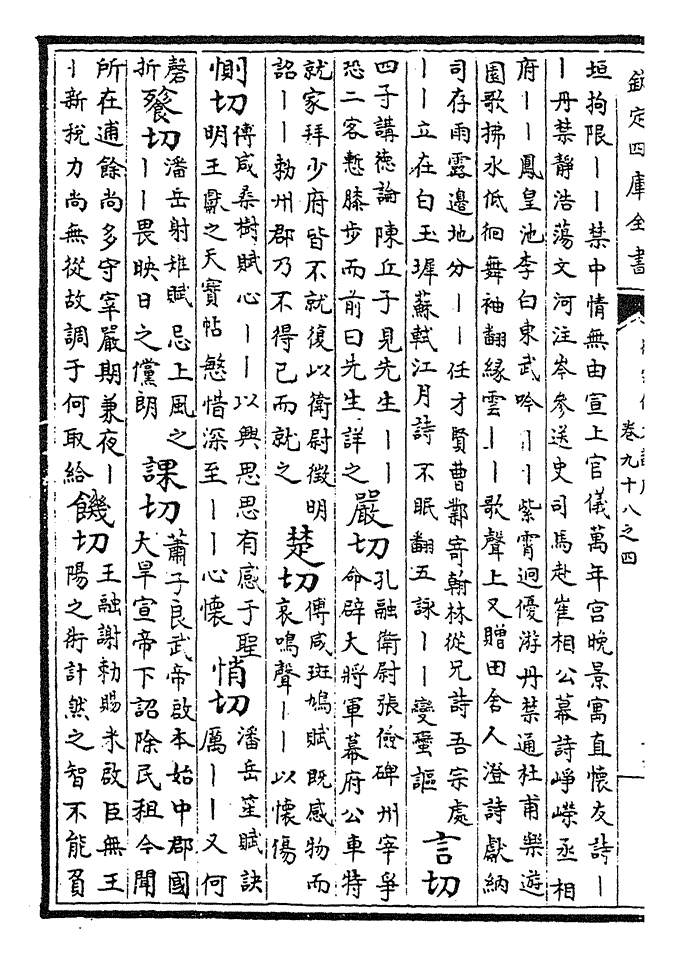 欽定四庫全書
卷九十八之四
垣拘限丨丨禁中情無由宣上官儀萬年宫晚景寓直懷友詩丨
丨丹禁靜浩蕩文河注岑參送史司馬赴崔相公幕詩崢嶸丞相
府丨丨鳳皇池李白東武吟丨丨紫霄迥優游丹禁通杜甫樂遊
園歌拂水低徊舞袖翻縁雲丨丨歌聲上又贈田舍人澄詩獻納
司存雨露邊地分丨丨任才賢曹鄴寄翰林從兄詩吾宗處
丨丨立在白玉墀蘇軾江月詩不眠翻五詠丨丨變蠻謳
言切
四子講徳論陳丘子見先生丨丨
恐二客慙膝步而前曰先生詳之
嚴切
孔融衛尉張儉碑州宰爭
命辟大將軍幕府公車特
就家拜少府皆不就復以衛尉徵明
詔丨丨勑州郡乃不得已而就之
楚切
傅咸斑鳩賦既感物而
哀鳴聲丨丨以懷傷
惻切
傅咸桑樹賦心丨丨以興思思有感于聖
明王獻之天寳帖慜惜深至丨丨心懷
悄切
潘岳笙賦訣
厲丨丨又何
磬
折
饕切
潘岳射雉賦忌上風之
丨丨畏映日之儻朗
課切
蕭子良武帝啟本始中郡國
大旱宣帝下詔除民租今聞
所在逋餘尚多守宰嚴期兼夜丨
丨新稅力尚無從故調于何取給
饑切
王融謝勑賜米啟臣無王
陽之術計然之智不能貟